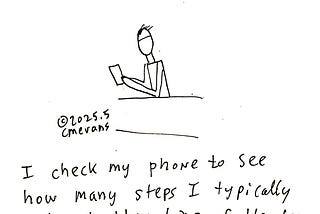 ©2025.5
cmevans
I check my phone to see
how many steps I typically